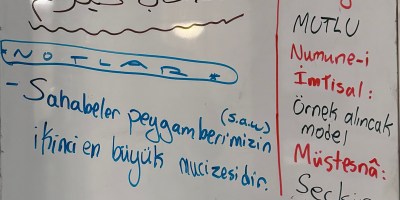 * NOTLAR *
- Sahabeler peygamberimizin (s.a.w)
ikinci en büyük mucizesidir.
MUTLU
Numune-i
İmtisal:
Örnek alıncak
model
Müstesnâ: